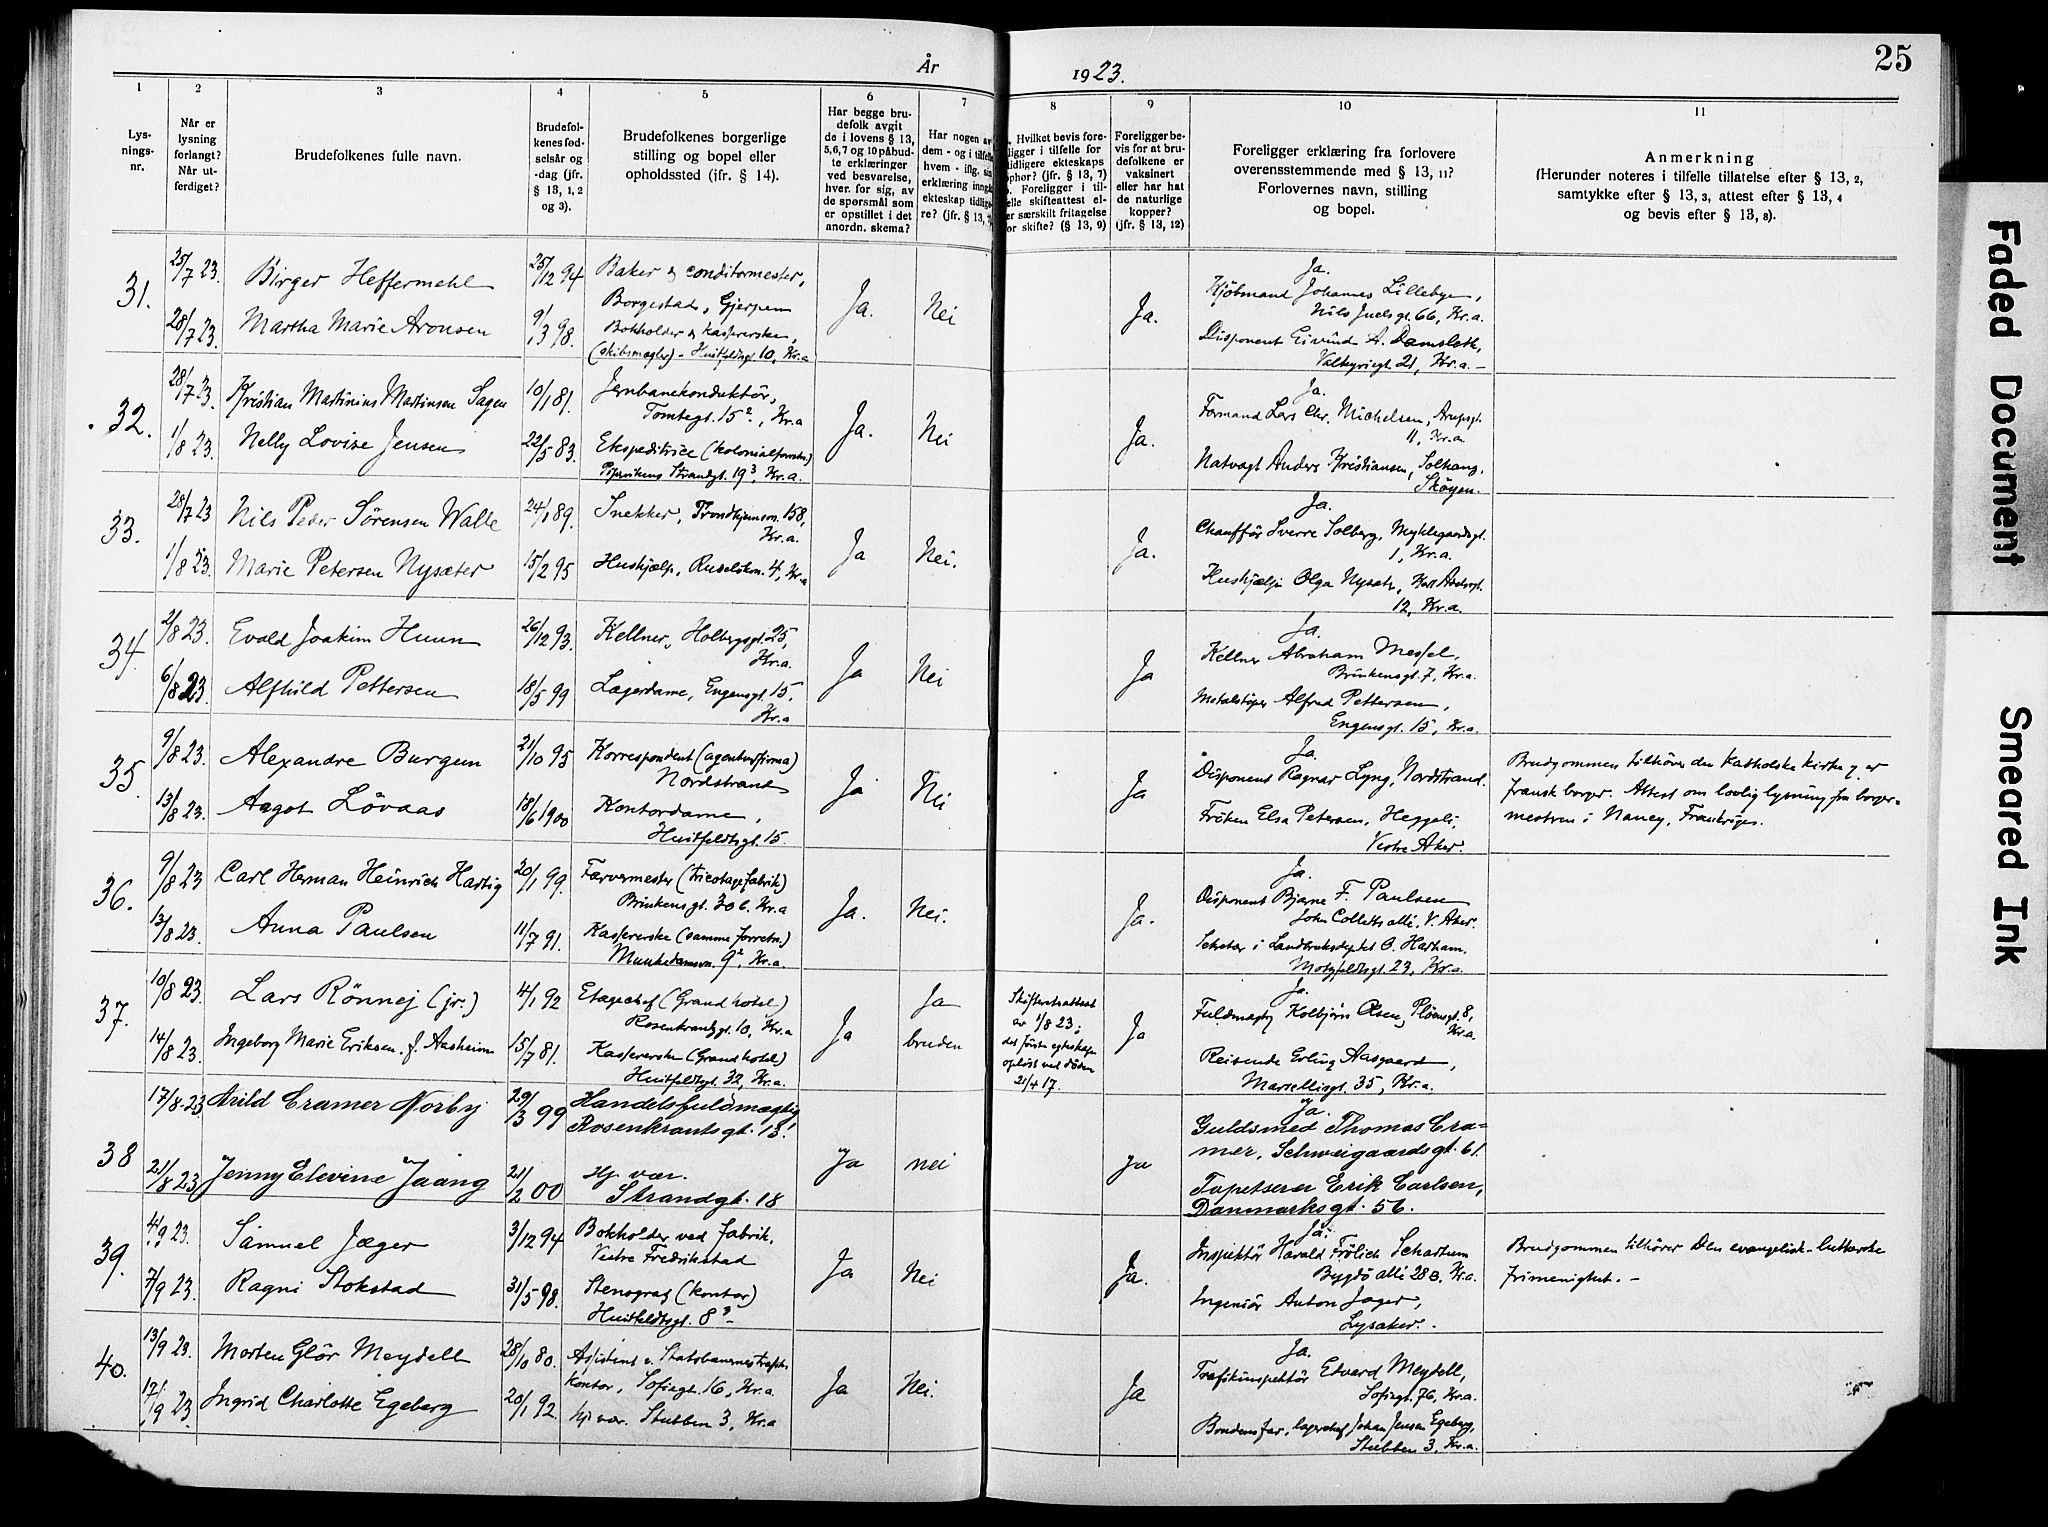 25
År
1923.
1 2 3 4 5 6 7 8 9 10 11
Lys-
nings-
nr.
Når er
lysning
forlangt?
Når ut-
ferdiget?
Brudefolkenes fulle navn.
Brudefol-
kenes fød-
selsår og
-dag (jfr.
§ 13, 1, 2
og 3).
Brudefolkenes borgerlige
stilling og bopel eller
opholdssted (jfr. § 14).
Har begge bru-
defolk avgit
de i lovens § 13,
5, 6, 7 og 10 påbud-
te erklæringer
ved besvarelse,
hver. for sig, av
de spørsmål som
er opstillet i det
anordn. skema?
Har nogen av
dem - og i tilfelle
hvem - iflg. sin
erklæring inngå
ekteskap tidlige-
re? (jfr. § 13, 7
Hvilket bevis fore-
ligger i tilfelle for
tidligere ekteskaps
ophør? (jfr. § 13, 7)
Foreligger i til-
elle skifteattest el-
er særskilt fritagelse
or skifte? (§ 13, 9)
Foreligger be-
vis for at bru-
defolkene er
vaksinert
eller har hat
de naturlige
kopper?
(jfr. § 13, 12)
Foreligger erklæring fra forlovere
overensstemmende med § 13, 11?
Forlovernes navn, stilling
og bopel.
Anmerkning
(Herunder noteres i tilfelle tillatelse efter § 13, 2,
samtykke efter § 13, 3, attest efter § 13, 4
og bevis efter § 13, 8).
31.
25/7 23.
28/7 23.
Birger Heffermehl
Martha Marie Aronsen
25/12 94
9/3 98.
Baker & conditormester,
Borgestad, Gjerpen
Bokholder & kassererske,
(skibsmegler) - Huitfeldtsgt. 10, Kr.a
Ja.
Nei
Ja.
Ja.
Kjöbmand Johannes Lillebye,
Nils Juelsgt. 66, Kr.a.
Disponent Eivind A. Damsleth,
Valkyriegt. 21, Kr.a. -
32.
28/7 23.
1/8 23.
Kristian Martinius Martinsen Sagen
Nelly Lovise Jensen
10/1 81.
22/5 83.
Jernbanekonduktör,
Tomtegt. 15², Kr.a
Ekspeditrice (kolonialforretn.)
Pipervikens Strandgt. 19³, Kr.a.
Ja.
Nei
Ja.
Ja.
Formand Lars Chr. Michelsen, Arupsgt.
11, Kr.a.
Natvagt Anders Kristiansen, Solhaug,
Sköyen.
33.
28/7 23
1/8 23.
Nils Peder Sörensen Walle
Marie Petersen Nysæter
24/1 89.
15/2 95
Snekker, Trondhjemsvn. 158,
Kr.a.
Hushjælp, Ruselökvn. 4, Kr.a
Ja
Nei.
Ja.
Ja.
Chaufför Sverre Solberg, Myklegaardsgt.
1, Kr.a.
Hushjælp Olga Nysæter, Karl
12, Kr.a.
34.
2/8 23.
6/8 23
Evald Joakim Huun
Alfhild Pettersen
26/12 93.
18/5 99
Kellner, Holbergsgt. 25,
Kr.a.
Lagerdame, Engensgt. 15.
Kr.a
Ja
Nei
Ja
Ja.
Kellner Abraham Messel,
Brinkensgt. 7, Kr.a.
Metalstöper Alfred Pettersen,
Engensgt. 15, Kr.a.
35.
9/8 23.
13/8 23.
Alexandre Burgun
Aagot Lövaas
21/10 95
18/6 1900
Korrespondent (agenturfirma)
Nordstrand
Kontordame,
Huitfeldtsgt. 15.
Ja
Nei
Ja
Ja.
Disponent Ragnar Lyng, Nordstrand.
Fröken Elsa Petersen, Heggeli,
Vestre Aker.
Brudgommen tilhörer den katholske kirke & er
fransk borger. Attest om lovlig lysning fra borger-
mestren i Nancy, Frankrige.
36.
9/8 23
13/8 23.
Carl Herman Heinrich Hartig
Anna Paulsen
20/1 99.
11/7 91.
Farvermester (tricotagefabrik)
Brinkens gt. 30 b. Kr.a
Kassererske (samme forretn.)
Munkedamsvn. 9², Kr.a.
Ja.
Nei.
Ja.
Ja.
Disponent Bjarne F. Paulsen
John Colletts allé, V. Aker.
Sekretær i Landbruksdeptet O. Hartmann.
Motzfeldtsgt. 23, Kr.a.
37.
10/8 23.
14/8 23.
Lars Rönnej (jr.)
Ingeborg Marie Eriksen f. Aasheim
4/1 92
15/7 81.
Etagechef (Grand hotel)
Rosenkrantzgt. 10, Kr.a
Kassererske (Grand hotel)
Huitfeldtsgt. 32, Kr.a.
Ja
Ja
bruden
Skifteretsattest
av 1/8 23;
det förste egteskap
oplöst ved döden
21/4 17.
Ja
Ja.
Fuldmægtig Kolbjörn Olsen, Plöensgt. 8,
Kr.a.
Reisende Erling Aasgaard,
Marselisgt. 35, Kr.a.
38
17/8-23
21/8 23
Arild Cramer Norby
Jenny Elevine Jaang
29/3 99
21/2 00
Handelsfuldmægtig
Rosenkrantsgt. 13!
Hj. vær.
Strandgt. 18
Ja
nei
ja
Ja.
Guldsmed Thomas Cra-
mer, Schweigaardsgt. 61.
Tapetserer Erik Carlsen,
Danmarksgt. 56.
39.
4/9 23.
7/9 23.
Samuel Jæger
Ragni Stokstad
3/12 94
31/5 98.
Bokholder ved fabrik.
Vestre Fredrikstad
Stenograf (kontor)
Huitfeldtsgt. 8³-
Ja
Nei
Ja.
Ja.
Inspektör Harald Frölich Schartum
Bygdö allé 28 B. Kr.a.
Ingeniör Anton Jæger,
Lysaker. -
Brudgommen tilhörer Den evangelisk-lutherske
frimenighet. -
40.
13/9 23.
17/9 23.
Morten Glör Meydell
Ingrid Charlotte Egeberg
28/10 80.
20/1 92.
Assistent v. Statsbanernes trafik-
kontor, Sofiegt. 16, Kr.a
Hj. vær. Stubben 3, Kr.a
Ja
Nei.
Ja
Ja.
Trafikinspektör Edvard Meydell,
Sofiegt. 76, Kr.a.
Brudens far, lagerchef Johan Jensen Egeberg,
Stubben 3, Kr.a.
Faded Document
Smeared Ink